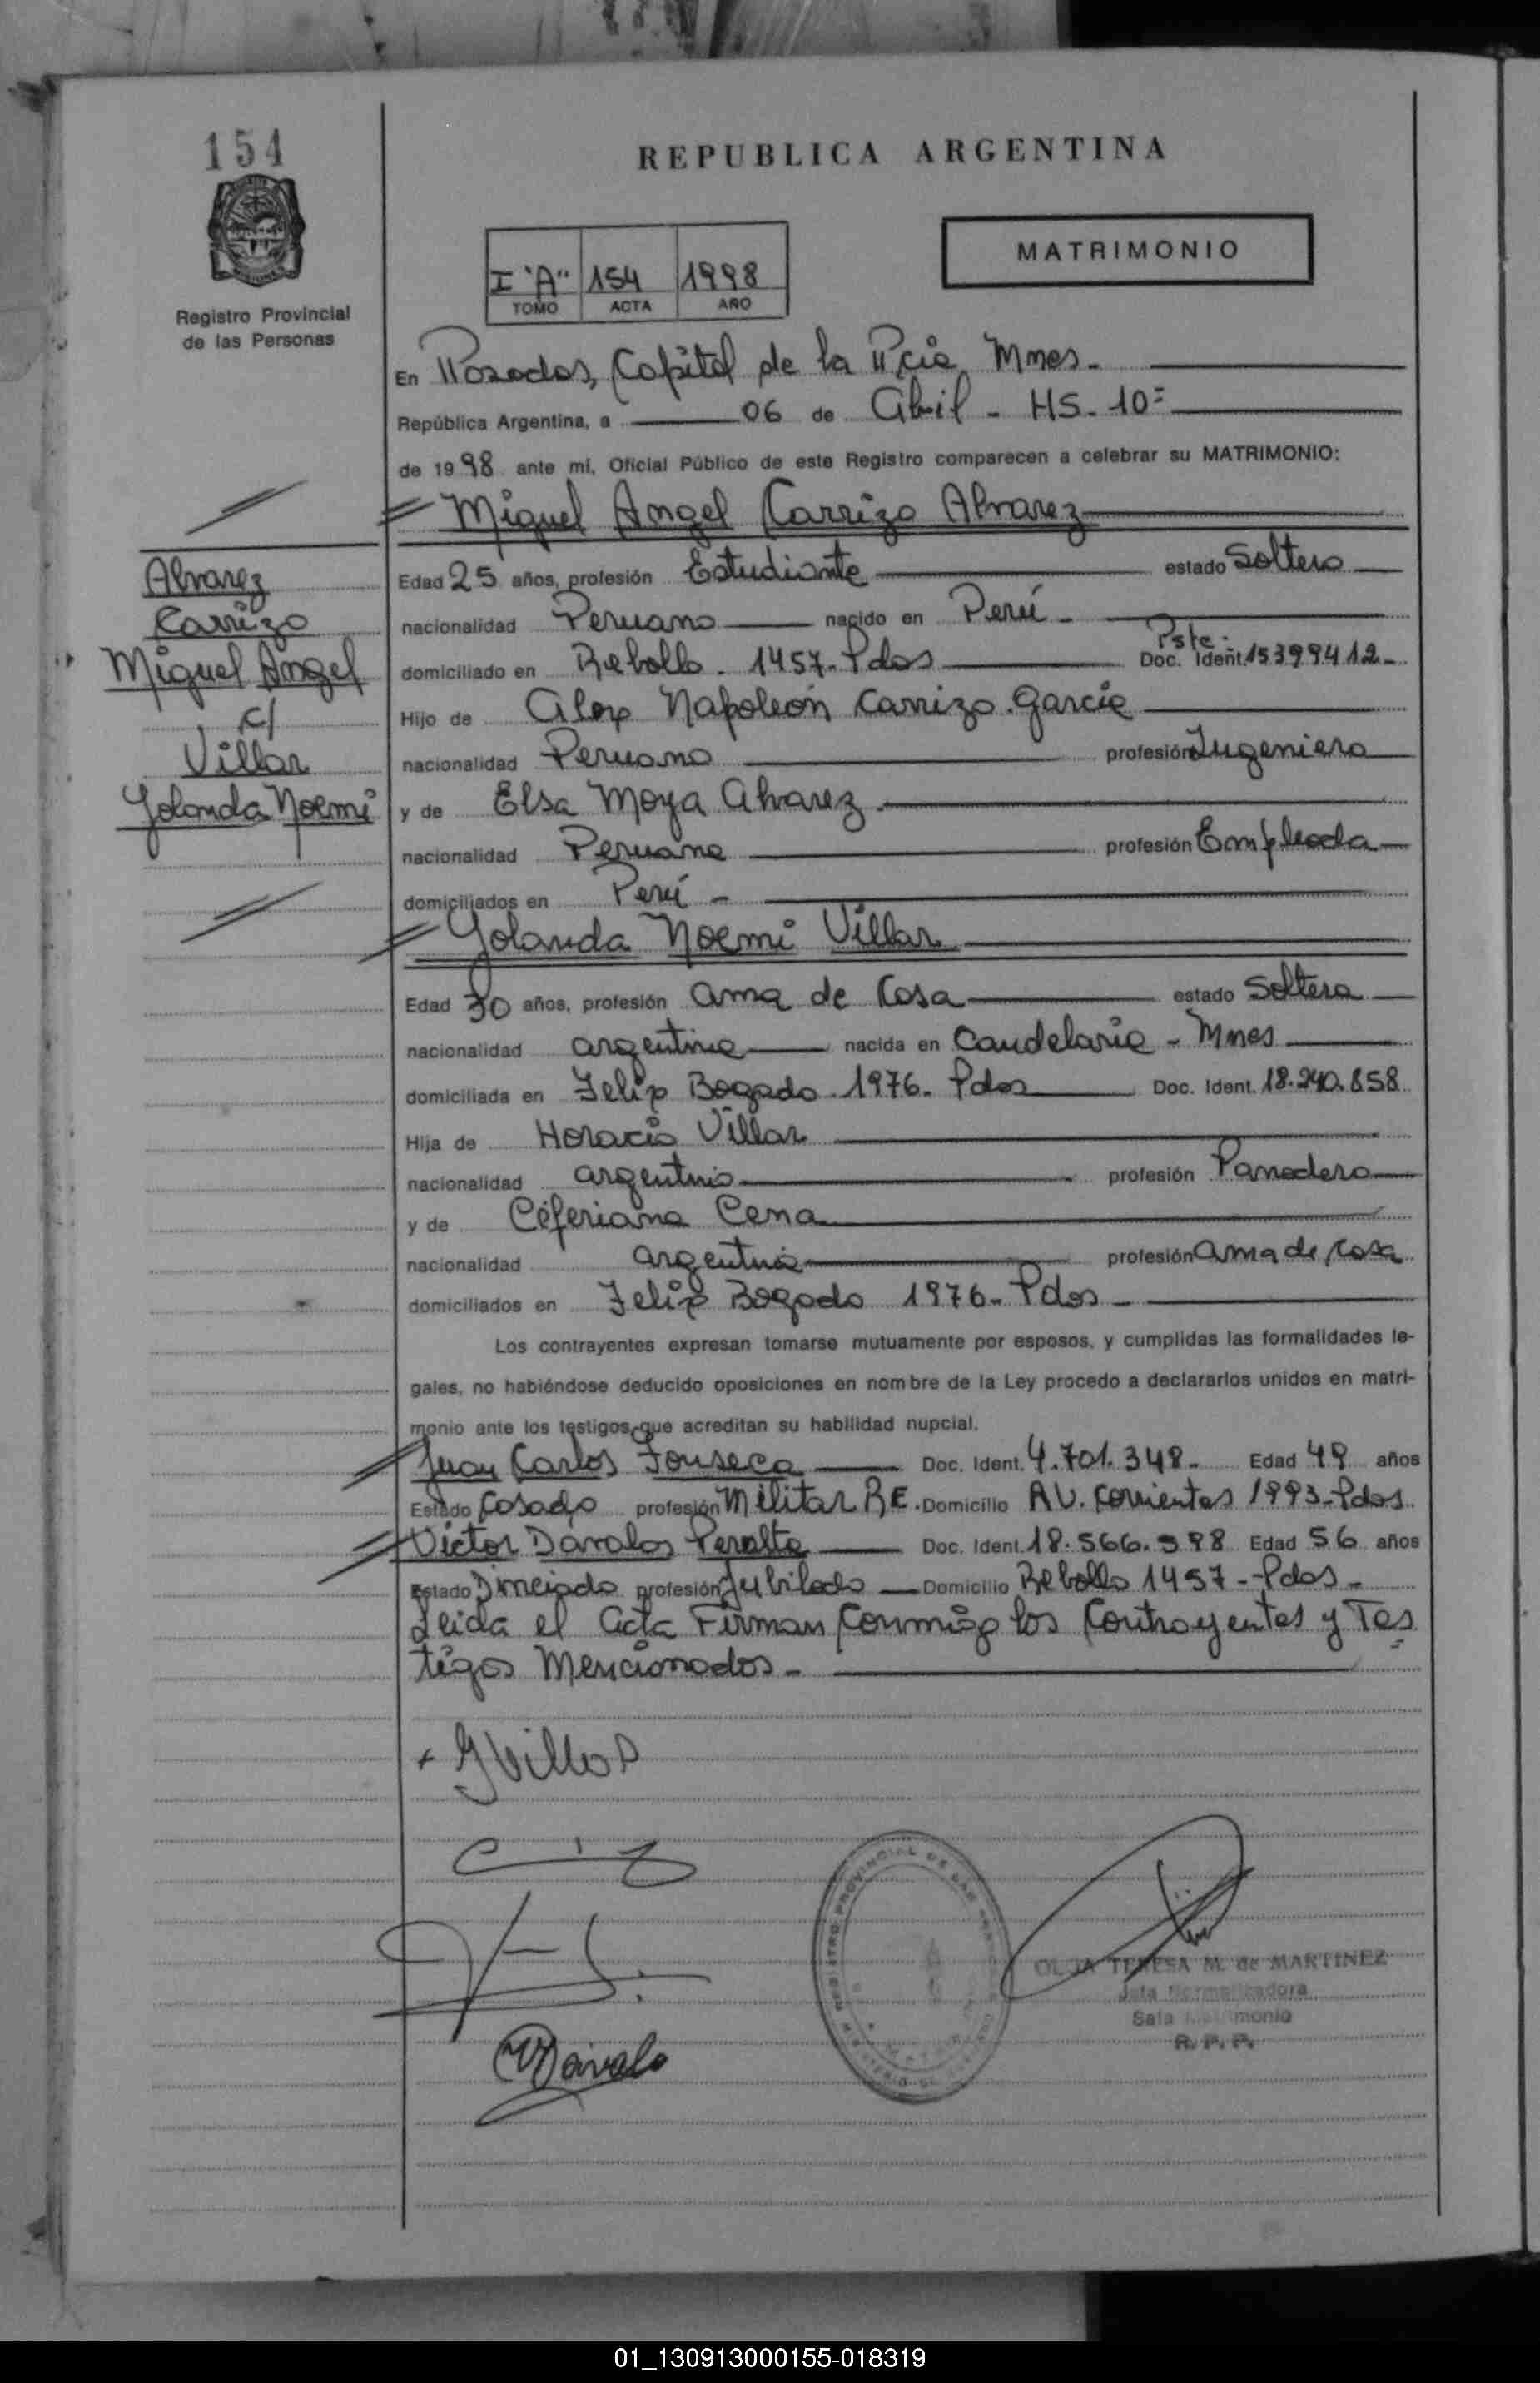 154
REPUBLICA ARGENTINA
MATRIMONIO
I "A" 154 1998
TOMO ACTA AÑO
Registro Provincial
de las Personas
En Posadas, Capital de la Pcia Mnes.
República Argentina, a 06 de Abril - HS. 10=
de 1998 ante mí, Oficial Público de este Registro comparecen a celebrar su MATRIMONIO:
Miguel Angel Carrizo Alvarez
Alvarez
Carrizo
Miguel Angel
c/
Villar
Yolanda Noemi
Edad 25 años, profesión Estudiante estado Soltero
nacionalidad Peruano nacido en Perú -
domiciliado en Rebollo. 1457- Pdas Pste. Doc. Ident. 15399412-
Hijo de Napoleón Carrizo. García
nacionalidad Peruano profesión Ingeniero
y de Elsa Moya Alvarez
nacionalidad Peruana profesión Empleada
domiciliados en Perú -
Yolanda Noemi Villar
Edad 30 años, profesión ama de Casa estado Soltera
nacionalidad argentina nacida en Candelaria - Mnes
domiciliada en Felip Bogado. 1976- Pdas Doc. Ident. 18.240.858
Hija de Horacio Villar
nacionalidad argentino profesión Panadero
y de Ceferiana Cena
nacionalidad argentina profesión ama de casa
domiciliados en Felip Bogado 1976- Pdas -
Los contrayentes expresan tomarse mutuamente por esposos, y cumplidas las formalidades le-
gales, no habiéndose deducido oposiciones en nombre de la Ley procedo a declararlos unidos en matri-
monio ante los testigos que acreditan su habilidad nupcial.
Juan Carlos Fonseca Doc. Ident. 4.701.348- Edad 49 años
Estado Casado profesión Militar RE. Domicilio AV. Corrientes 1993-Pdas.
Victor Dávalos Peralta Doc. Ident. 18.566.398 Edad 56 años
Estado Divorciado profesión Jubilado Domicilio Rebollo 1457 - Pdas -
Leida el Acta Firman Conmigo los Contrayentes y Tes
tigos Mencionados -
+ YVillar
VDávalo
OLGA TERESA M. de MARTINEZ
Jefa Normalizadora
Sala monio
R. P. P.
01_130913000155-018319